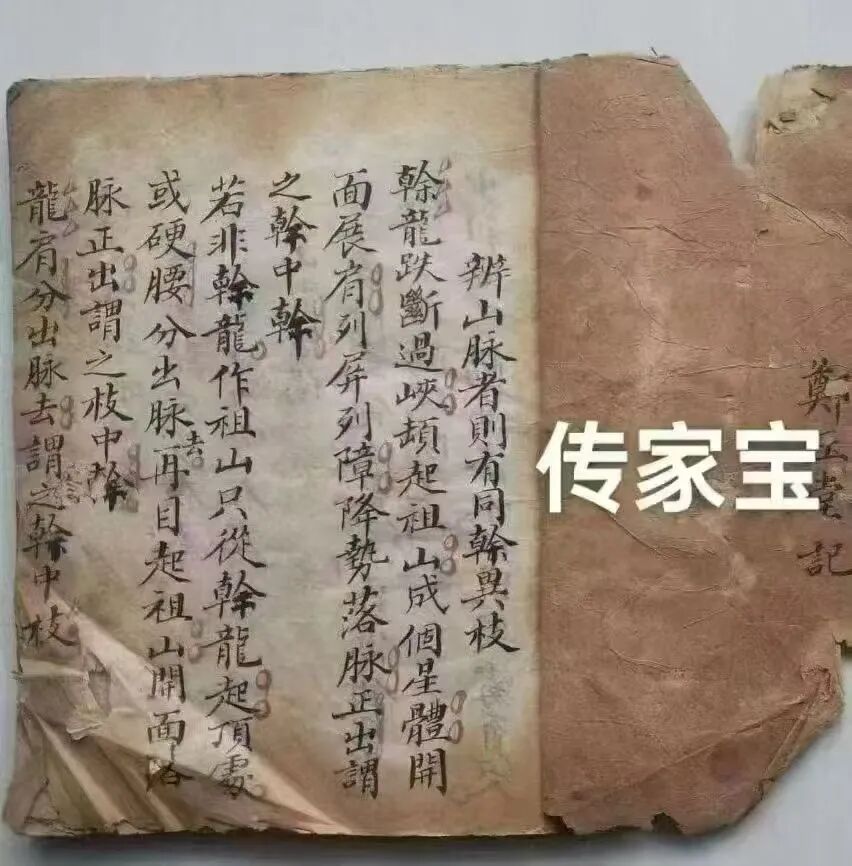 鄭玉堂記
传家宝
辨山脉者則有同幹異枝
幹龍跌斷過峽頓起祖山成個星體開
面展肩列屏列障降勢落脉正出謂
之幹中幹
若非幹龍作祖山只從幹龍起頂處
或硬腰分出脉去再自起祖山開面落
脉正出謂之枝中幹
龍肩分出脉去謂之幹中枝